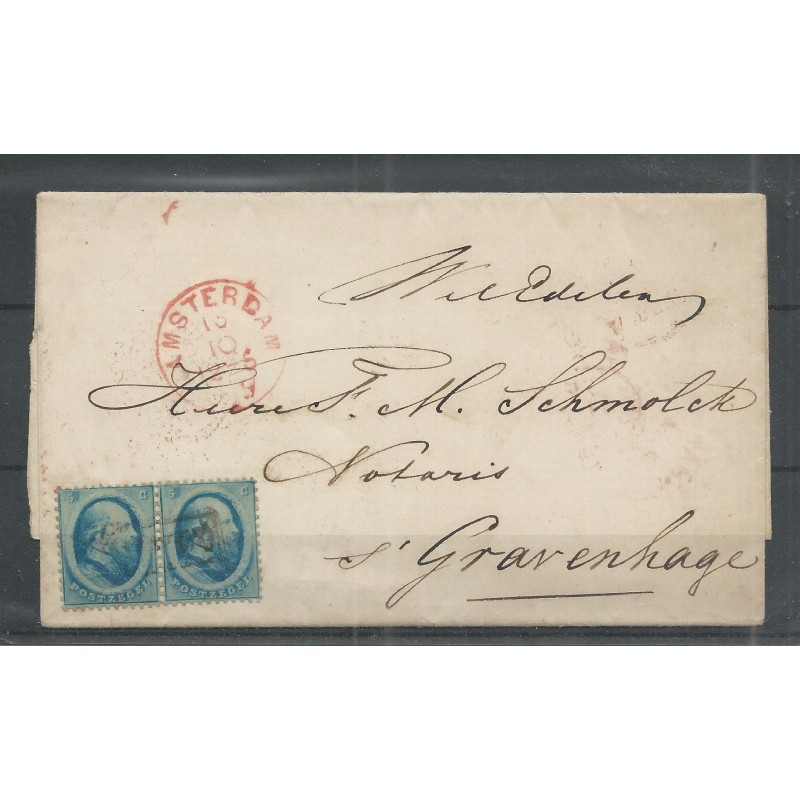 Wel Edelen
Heere F. M. Schmolck
Notaris
s' Gravenhage
AMSTERDAM
10
5 C
POSTZEGEL
5 C
POSTZEGEL